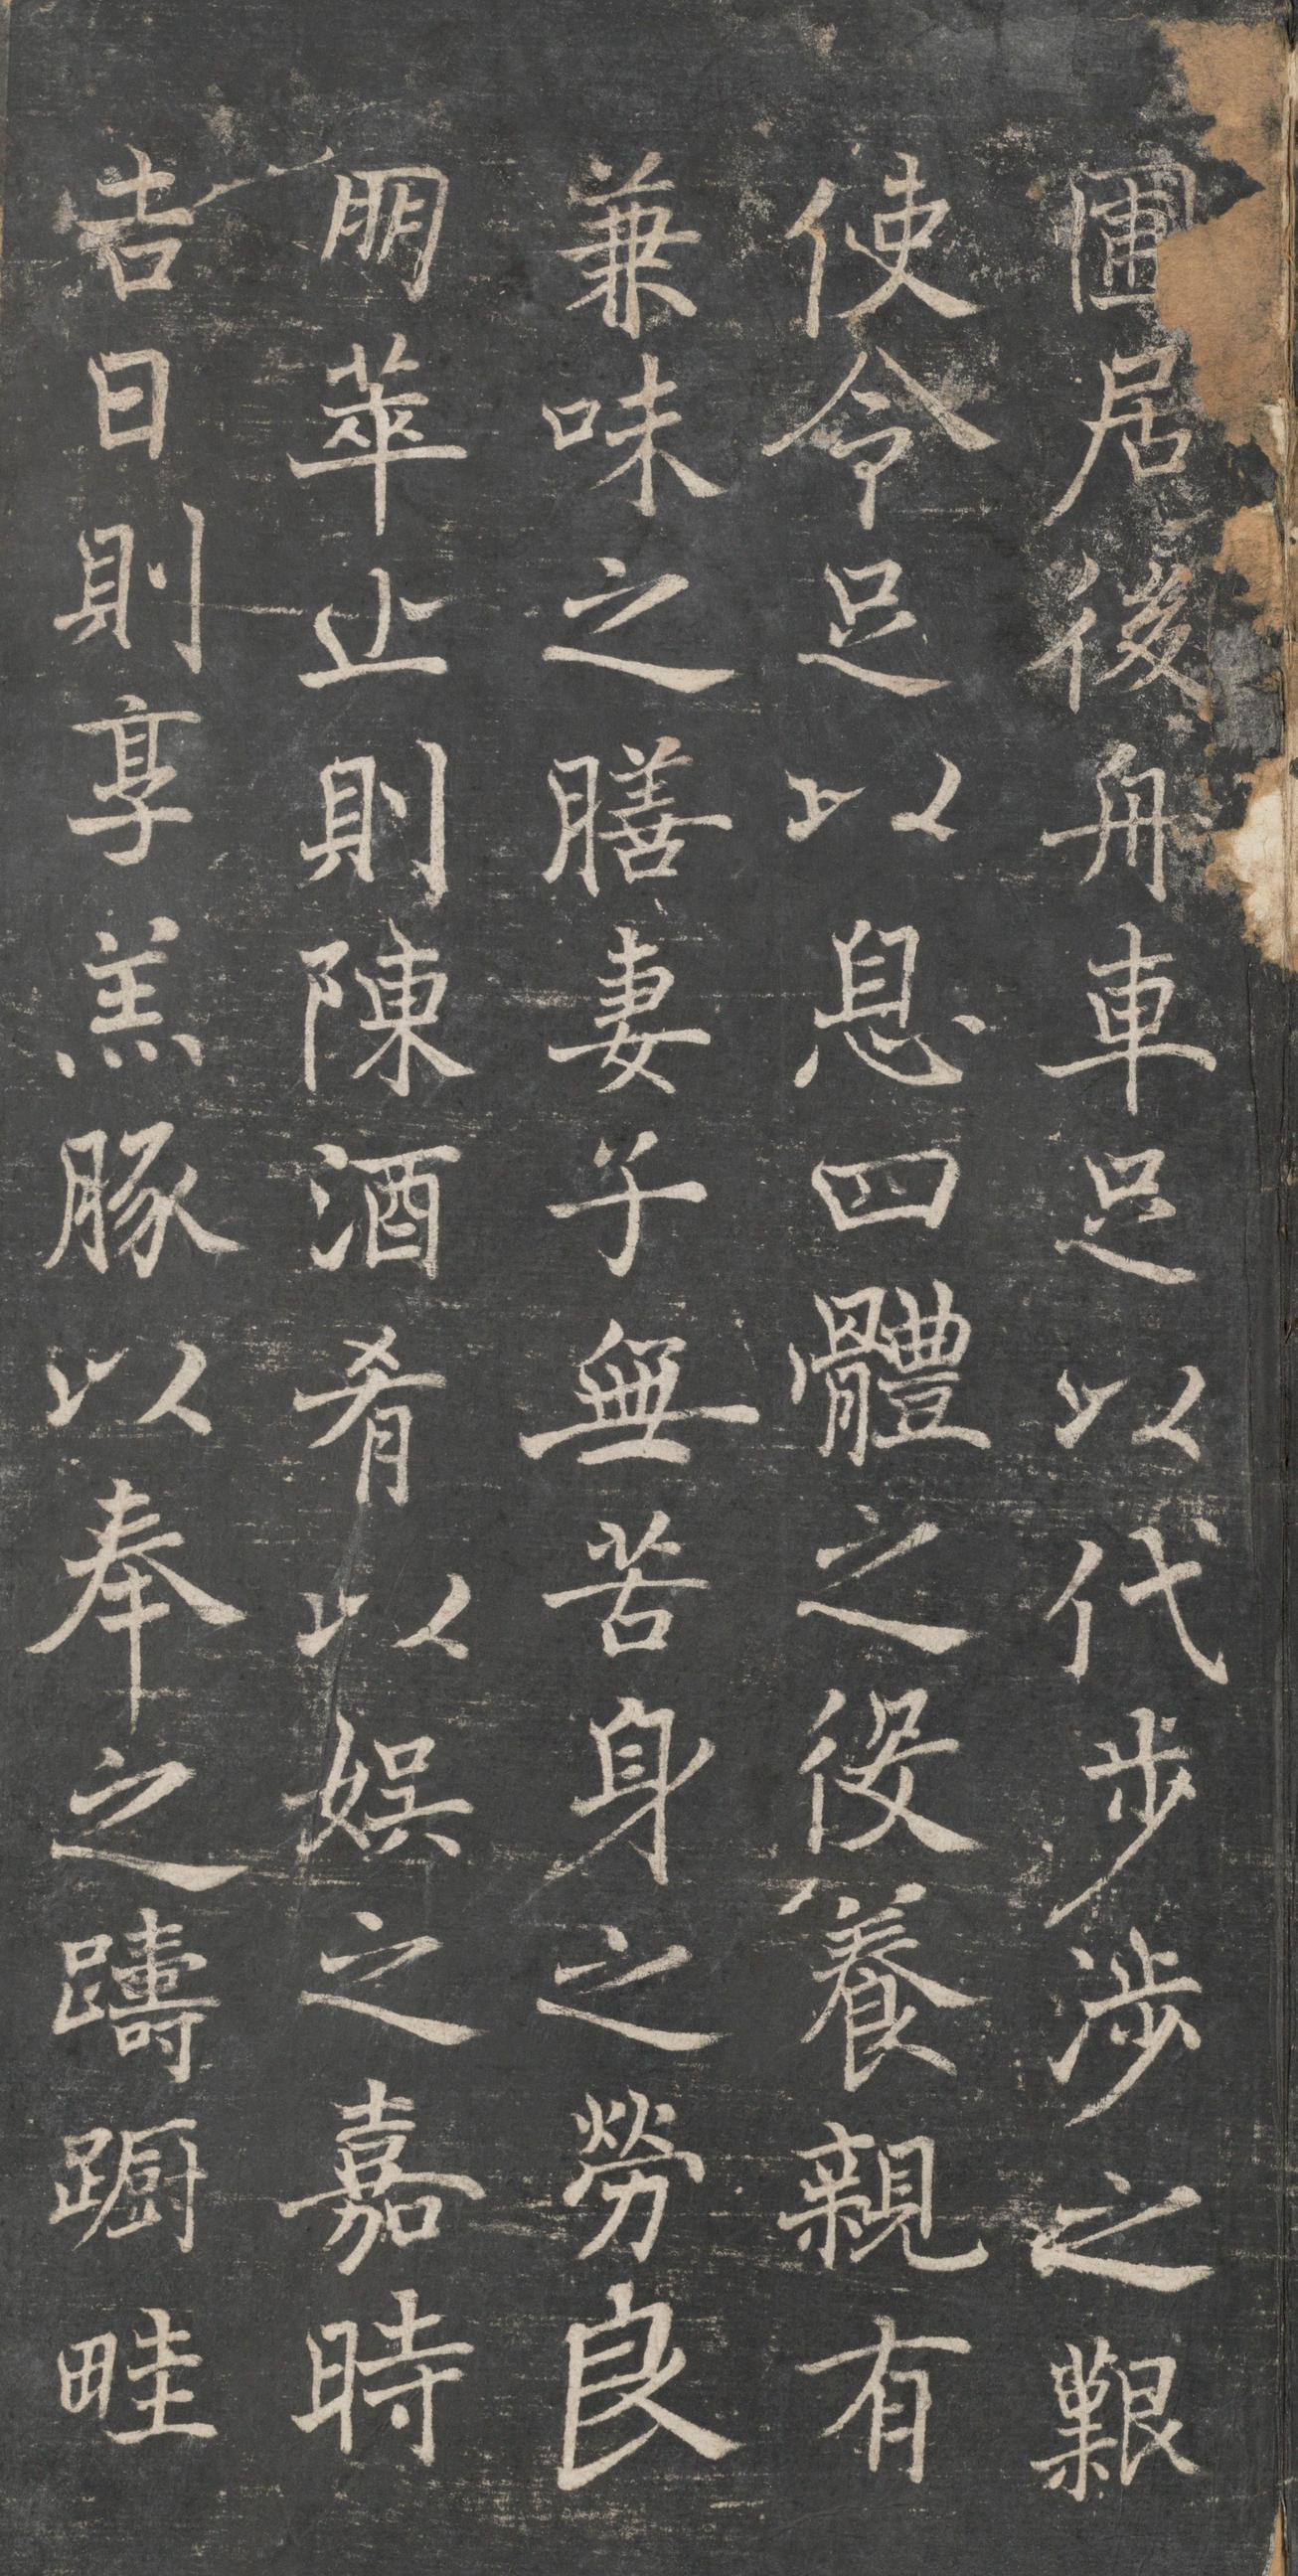 圃居後舟車足以代步涉之艱
使令足以息四體之役養親有
兼味之膳妻子無苦身之勞良
朋萃止則陳酒肴以娛之嘉時
吉日則享羔豚以奉之躊躕畦